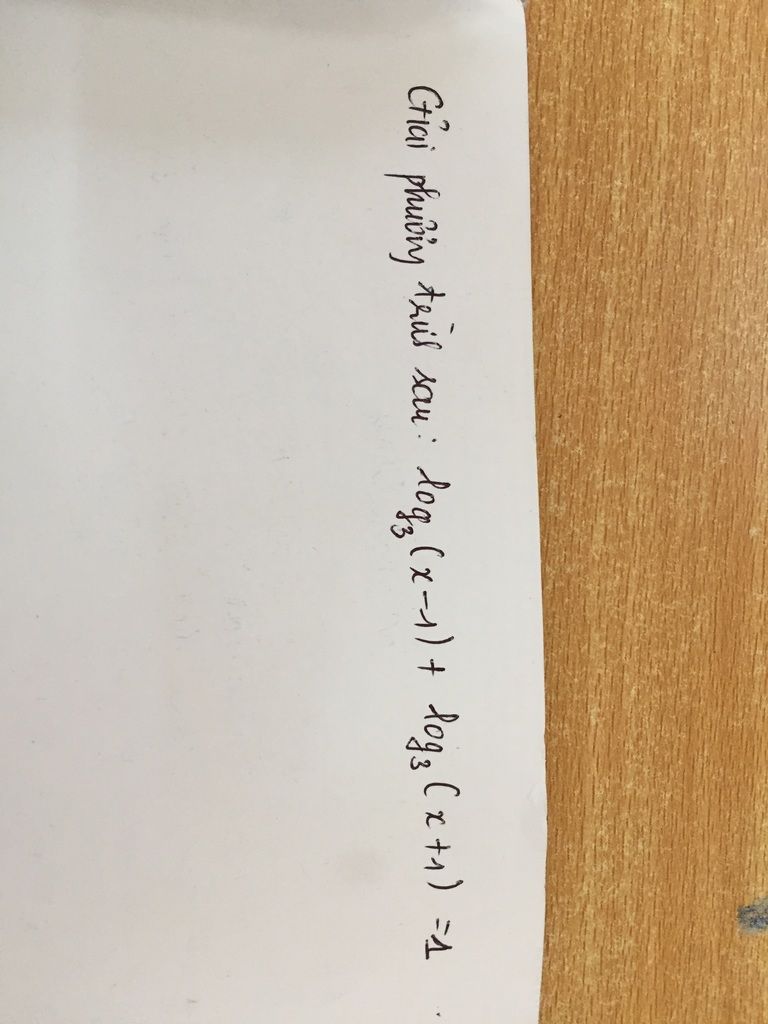 Giải phương trình sau: log₃(x-1) + log₃(x+1) = 1